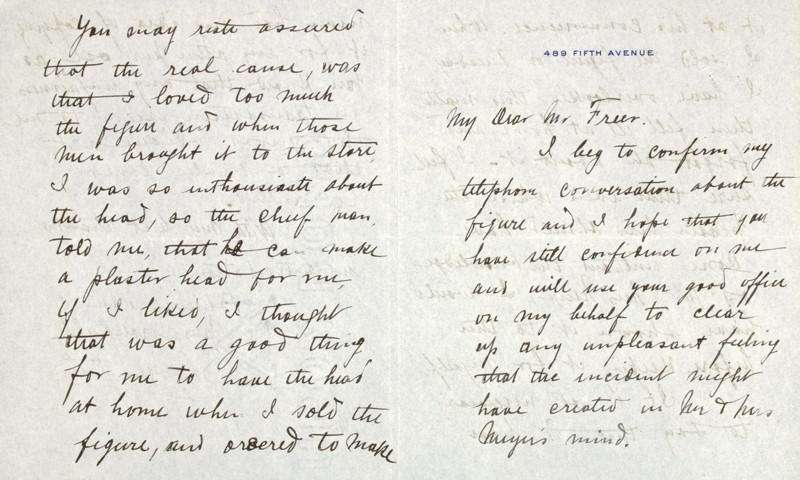 489 FIFTH AVENUE
My Dear Mr Freer.
I beg to confirm my
telephone conversation about the
figure and I hope that you
have still confidence on me
and will use your good office
on my behalf to clear
up any unpleasant feeling
that the incident might
have created in Mr & Mrs
Meyer's mind.
You may reste assured
that the real cause, was
that I loved too much
the figure and when those
men brought it to the store,
I was so enthousiaste about
the head, so the chief man,
told me, that he can make
a plaster head for me,
if I liked, I thought
that was a good thing
for me to have the head
at home when I sold the
figure, and orsered to make